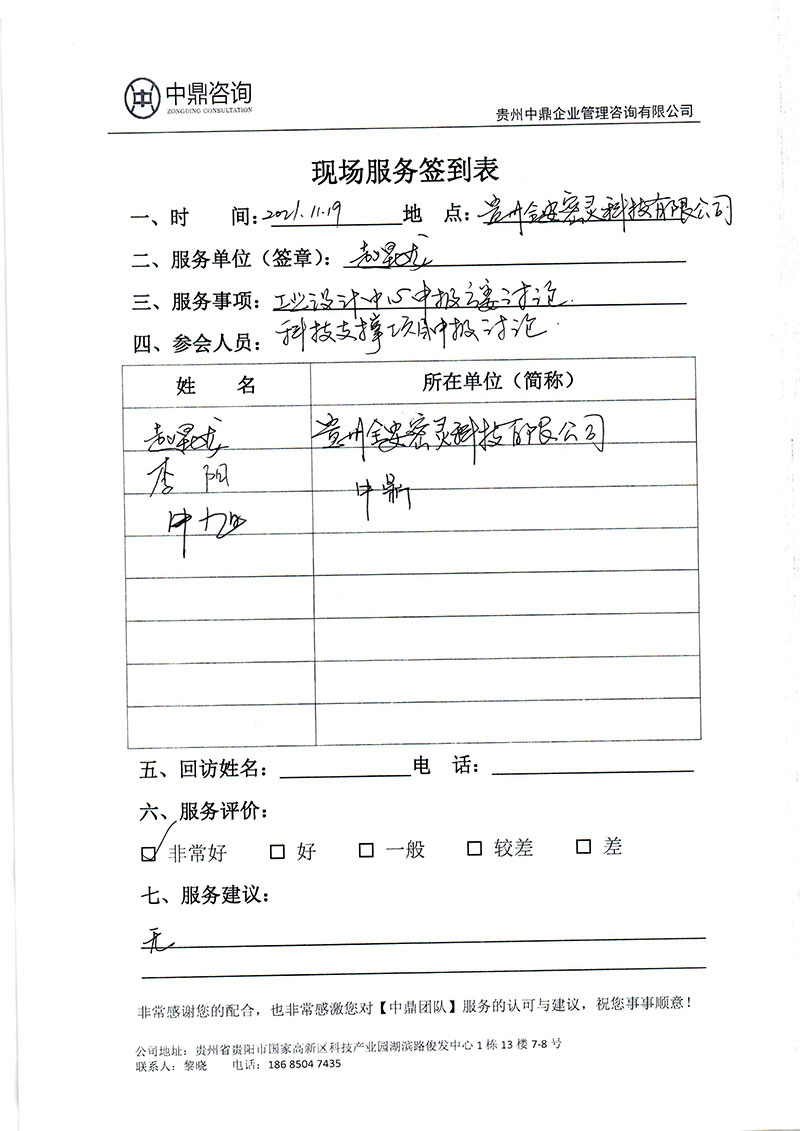 中鼎咨询
ZONGDING CONSULTATION
贵州中鼎企业管理咨询有限公司
现场服务签到表
一、时 间：2021.11.19 地 点：贵州金安密灵科技有限公司
二、服务单位（签章）：赵星龙
三、服务事项：工业设计中心申报方案讨论.
科技支撑项目申报讨论.
四、参会人员：
姓 名 所在单位（简称）
赵星龙 贵州金安密灵科技有限公司
李阳 中鼎
申
五、回访姓名： 电 话：
六、服务评价：
☑ 非常好 □ 好 □ 一般 □ 较差 □ 差
七、服务建议：
无
非常感谢您的配合，也非常感激您对【中鼎团队】服务的认可与建议，祝您事事顺意！
公司地址：贵州省贵阳市国家高新区科技产业园湖滨路俊发中心 1 栋 13 楼 7-8 号
联系人：黎晓 电话：186 8504 7435